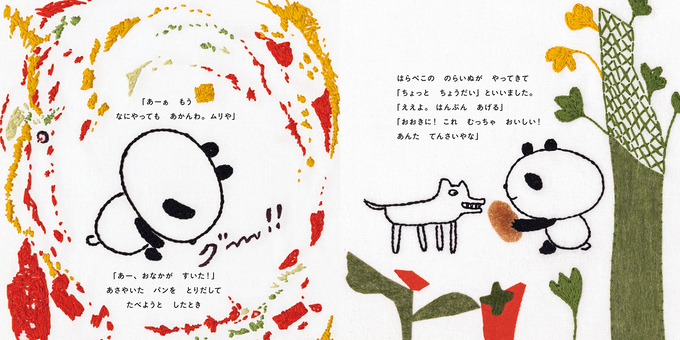 「あーぁ　もう
なにやっても　あかんわ。ムリや」
グー!!
「あー、おなかが　すいた！」
あさやいた　パンを　とりだして
たべようと　したとき
はらぺこの　のらいぬが　やってきて
「ちょっと　ちょうだい」といいました。
「ええよ。はんぶん　あげる」
「おおきに！これ　むっちゃ　おいしい！
あんた　てんさいやな」